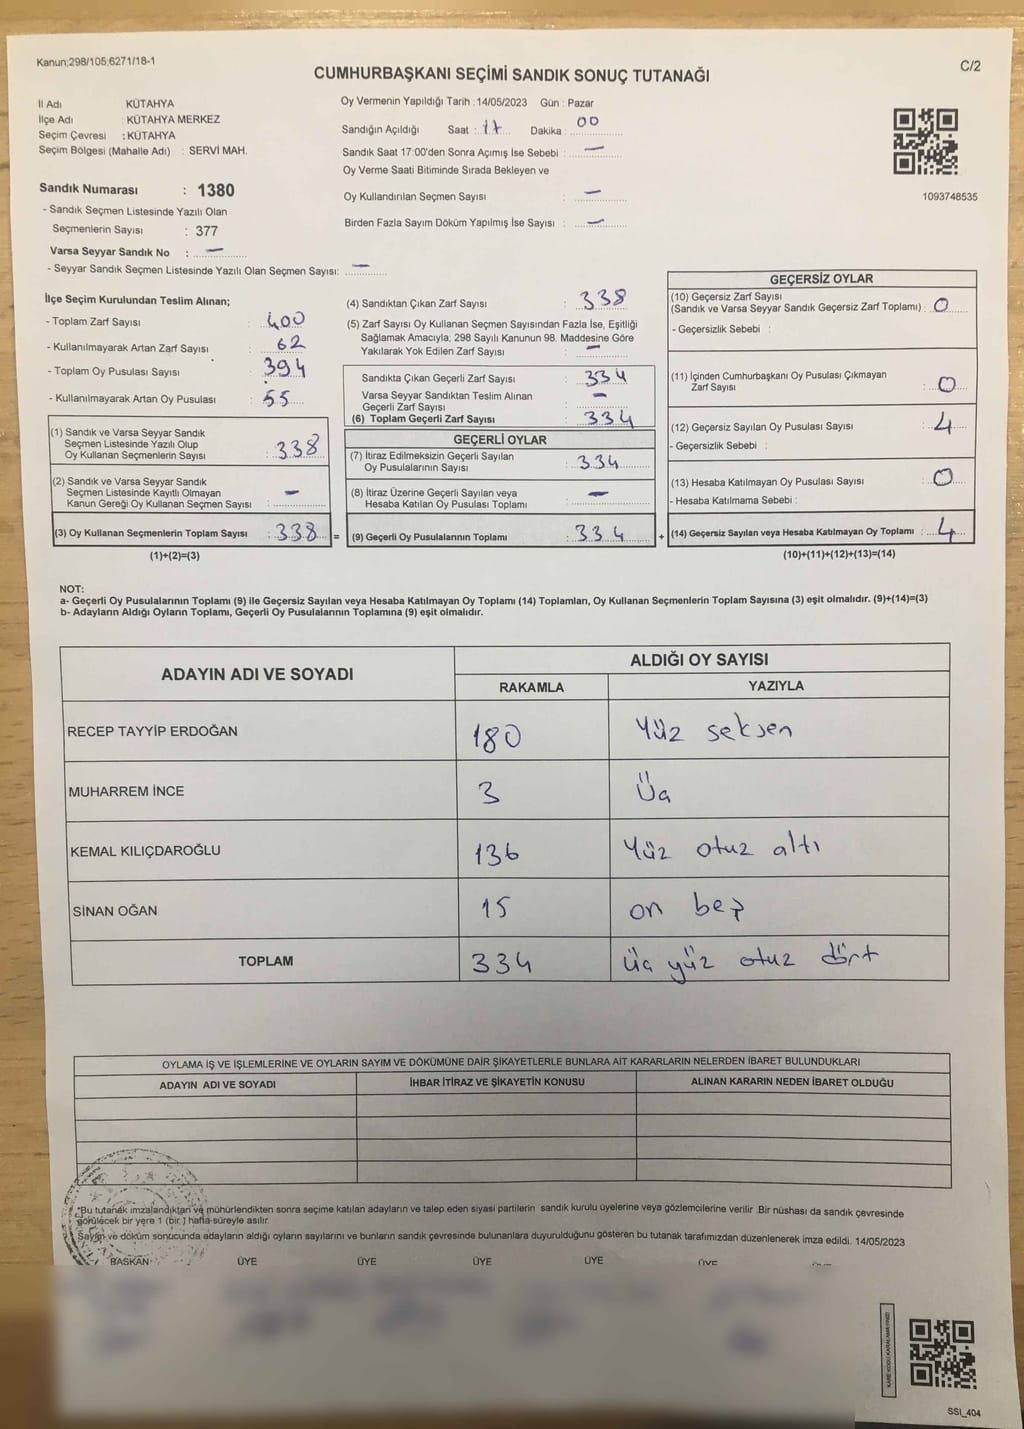 Kanun;298/105;6271/18-1
C/2
CUMHURBAŞKANI SEÇİMİ SANDIK SONUÇ TUTANAĞI
İl Adı : KÜTAHYA
İlçe Adı : KÜTAHYA MERKEZ
Seçim Çevresi : KÜTAHYA
Seçim Bölgesi (Mahalle Adı) : SERVİ MAH.
Sandık Numarası : 1380
- Sandık Seçmen Listesinde Yazılı Olan
Seçmenlerin Sayısı : 377
Varsa Seyyar Sandık No : —
- Seyyar Sandık Seçmen Listesinde Yazılı Olan Seçmen Sayısı: —
Oy Vermenin Yapıldığı Tarih : 14/05/2023 Gün : Pazar
Sandığın Açıldığı Saat : 17 Dakika : 00
Sandık Saat 17:00'den Sonra Açımış İse Sebebi : —
Oy Verme Saati Bitiminde Sırada Bekleyen ve
Oy Kullandırılan Seçmen Sayısı : —
Birden Fazla Sayım Döküm Yapılmış İse Sayısı : —
1093748535
İlçe Seçim Kurulundan Teslim Alınan;
- Toplam Zarf Sayısı : 400
- Kullanılmayarak Artan Zarf Sayısı : 62
- Toplam Oy Pusulası Sayısı : 394
- Kullanılmayarak Artan Oy Pusulası : 55
(1) Sandık ve Varsa Seyyar Sandık
Seçmen Listesinde Yazılı Olup
Oy Kullanan Seçmenlerin Sayısı : 338
(2) Sandık ve Varsa Seyyar Sandık
Seçmen Listesinde Kayıtlı Olmayan
Kanun Gereği Oy Kullanan Seçmen Sayısı : —
(3) Oy Kullanan Seçmenlerin Toplam Sayısı : 338 =
(1)+(2)=(3)
(4) Sandıktan Çıkan Zarf Sayısı : 338
(5) Zarf Sayısı Oy Kullanan Seçmen Sayısından Fazla İse, Eşitliği
Sağlamak Amacıyla; 298 Sayılı Kanunun 98. Maddesine Göre
Yakılarak Yok Edilen Zarf Sayısı : —
Sandıkta Çıkan Geçerli Zarf Sayısı : 334
Varsa Seyyar Sandıktan Teslim Alınan
Geçerli Zarf Sayısı : —
(6) Toplam Geçerli Zarf Sayısı : 334
GEÇERLİ OYLAR
(7) İtiraz Edilmeksizin Geçerli Sayılan
Oy Pusulalarının Sayısı : 334
(8) İtiraz Üzerine Geçerli Sayılan veya
Hesaba Katılan Oy Pusulası Toplamı : —
(9) Geçerli Oy Pusulalarının Toplamı : 334 +
GEÇERSİZ OYLAR
(10) Geçersiz Zarf Sayısı
(Sandık ve Varsa Seyyar Sandık Geçersiz Zarf Toplamı) : 0
- Geçersizlik Sebebi :
(11) İçinden Cumhurbaşkanı Oy Pusulası Çıkmayan
Zarf Sayısı : 0
(12) Geçersiz Sayılan Oy Pusulası Sayısı : 4
- Geçersizlik Sebebi :
(13) Hesaba Katılmayan Oy Pusulası Sayısı : 0
- Hesaba Katılmama Sebebi :
(14) Geçersiz Sayılan veya Hesaba Katılmayan Oy Toplamı : 4
(10)+(11)+(12)+(13)=(14)
NOT:
a- Geçerli Oy Pusulalarının Toplamı (9) ile Geçersiz Sayılan veya Hesaba Katılmayan Oy Toplamı (14) Toplamları, Oy Kullanan Seçmenlerin Toplam Sayısına (3) eşit olmalıdır. (9)+(14)=(3)
b- Adayların Aldığı Oyların Toplamı, Geçerli Oy Pusulalarının Toplamına (9) eşit olmalıdır.
ADAYIN ADI VE SOYADI
ALDIĞI OY SAYISI
RAKAMLA
YAZIYLA
RECEP TAYYİP ERDOĞAN 180 Yüz seksen
MUHARREM İNCE 3 Üç
KEMAL KILIÇDAROĞLU 136 Yüz otuz altı
SİNAN OĞAN 15 on beş
TOPLAM 334 Üç yüz otuz dört
OYLAMA İŞ VE İŞLEMLERİNE VE OYLARIN SAYIM VE DÖKÜMÜNE DAİR ŞİKAYETLERLE BUNLARA AİT KARARLARIN NELERDEN İBARET BULUNDUKLARI
ADAYIN ADI VE SOYADI
İHBAR İTİRAZ VE ŞİKAYETİN KONUSU
ALINAN KARARIN NEDEN İBARET OLDUĞU
"Bu tutanak imzalandıktan ve mühürlendikten sonra seçime katılan adayların ve talep eden siyasi partilerin sandık kurulu üyelerine veya gözlemcilerine verilir Bir nüshası da sandık çevresinde
görülecek bir yere 1 (bir ) hafta süreyle asılır.
Sayım ve döküm sonucunda adayların aldığı oyların sayılarını ve bunların sandık çevresinde bulunanlara duyurulduğunu gösteren bu tutanak tarafımızdan düzenlenerek imza edildi. 14/05/2023
BAŞKAN ÜYE ÜYE ÜYE ÜYE ÜYE
SSI_404